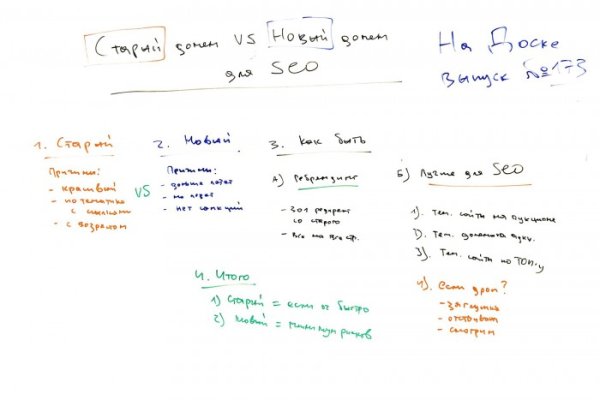 Старый домен VS Новый домен
для SEO
На Доске
выпуск №173
1. Старый
Причины:
- красивый
- по тематике
с ссылками
- с возрастом
VS
2. Новый
Причины:
- дольше
- нет санкций
3. Как быть
А) Ребрендинг
- 301 редирект
со старого
- все на все стр.
Б) Лучше для SEO
1). Тем. сайты на аукционе
2). Тем. домены аукц.
3). Тем. сайты по ТОП-у
4). если дроп?
- загрузка
- отстаиваем
- смотрим
4. Итого
1) Старый = если ок быстро
2) Новый = минимум рисков